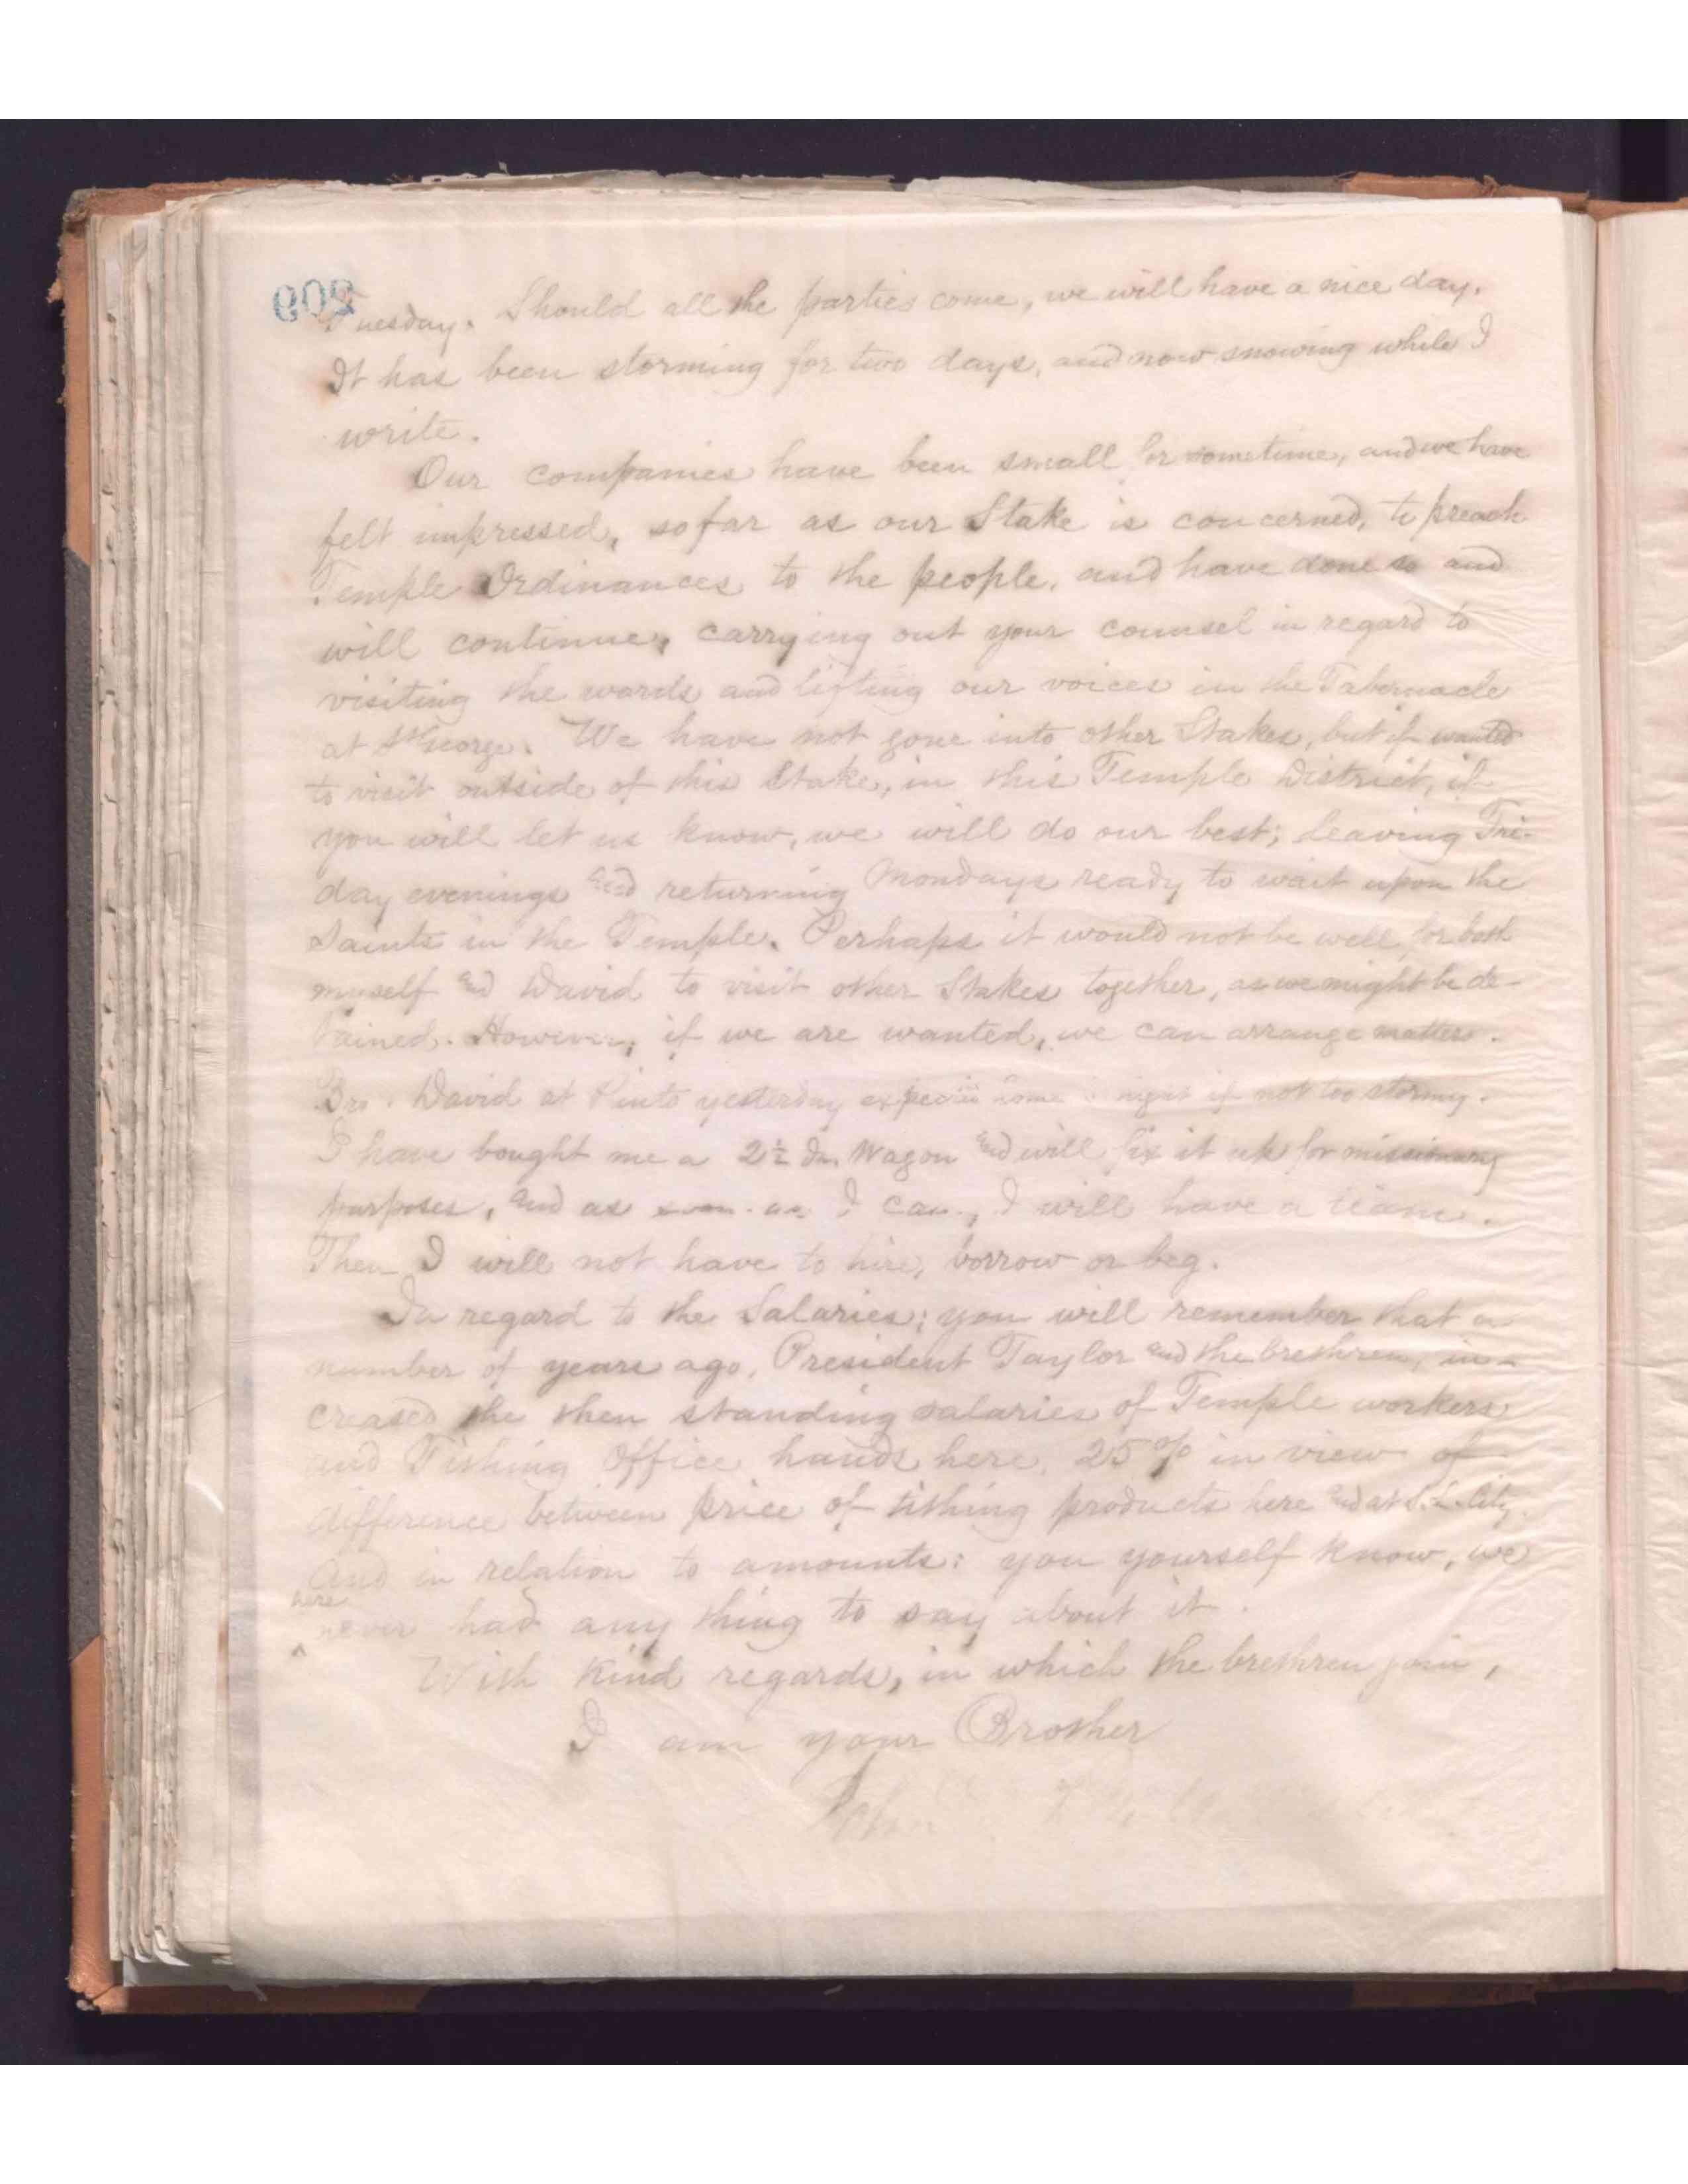 Tuesday. Should all the parties come, we will have a nice day.
It has been storming for two days, and now snowing while I
write.
Our companies have been small for sometime, and we have
felt impressed, so far as our Stake is concerned, to preach
Temple Ordinances to the people, and have done so and
will continue, carrying out your counsel in regard to
visiting the wards and lifting our voices in the Tabernacle
at St George. We have not gone into other Stakes, but if wanted
to visit outside of this Stake, in this Temple District, if
you will let us know, we will do our best; Leaving Fri-
day evenings and returning Mondays ready to wait upon the
Saints in the Temple. Perhaps it would not be well for both
myself and David to visit other Stakes together, as we might be de-
tained. However, if we are wanted, we can arrange matters.
Bro. David at Pinto yesterday home night if not too stormy.
I have bought me a 2½ In. Wagon and will fix it up for missionary
purposes, and as soon as I can, I will have a team.
Then I will not have to hire, borrow or beg.
In regard to the Salaries; you will remember that a
number of years ago, President Taylor and the brethren, in-
creased the then standing salaries of Temple workers
and Tithing Office hands here, 25% in view of
difference between price of tithing products here and at S. L. City.
And in relation to amounts: you yourself know, we
here
never had any thing to say about it.
^
With Kind regards, in which the brethren join,
I am your Brother
John